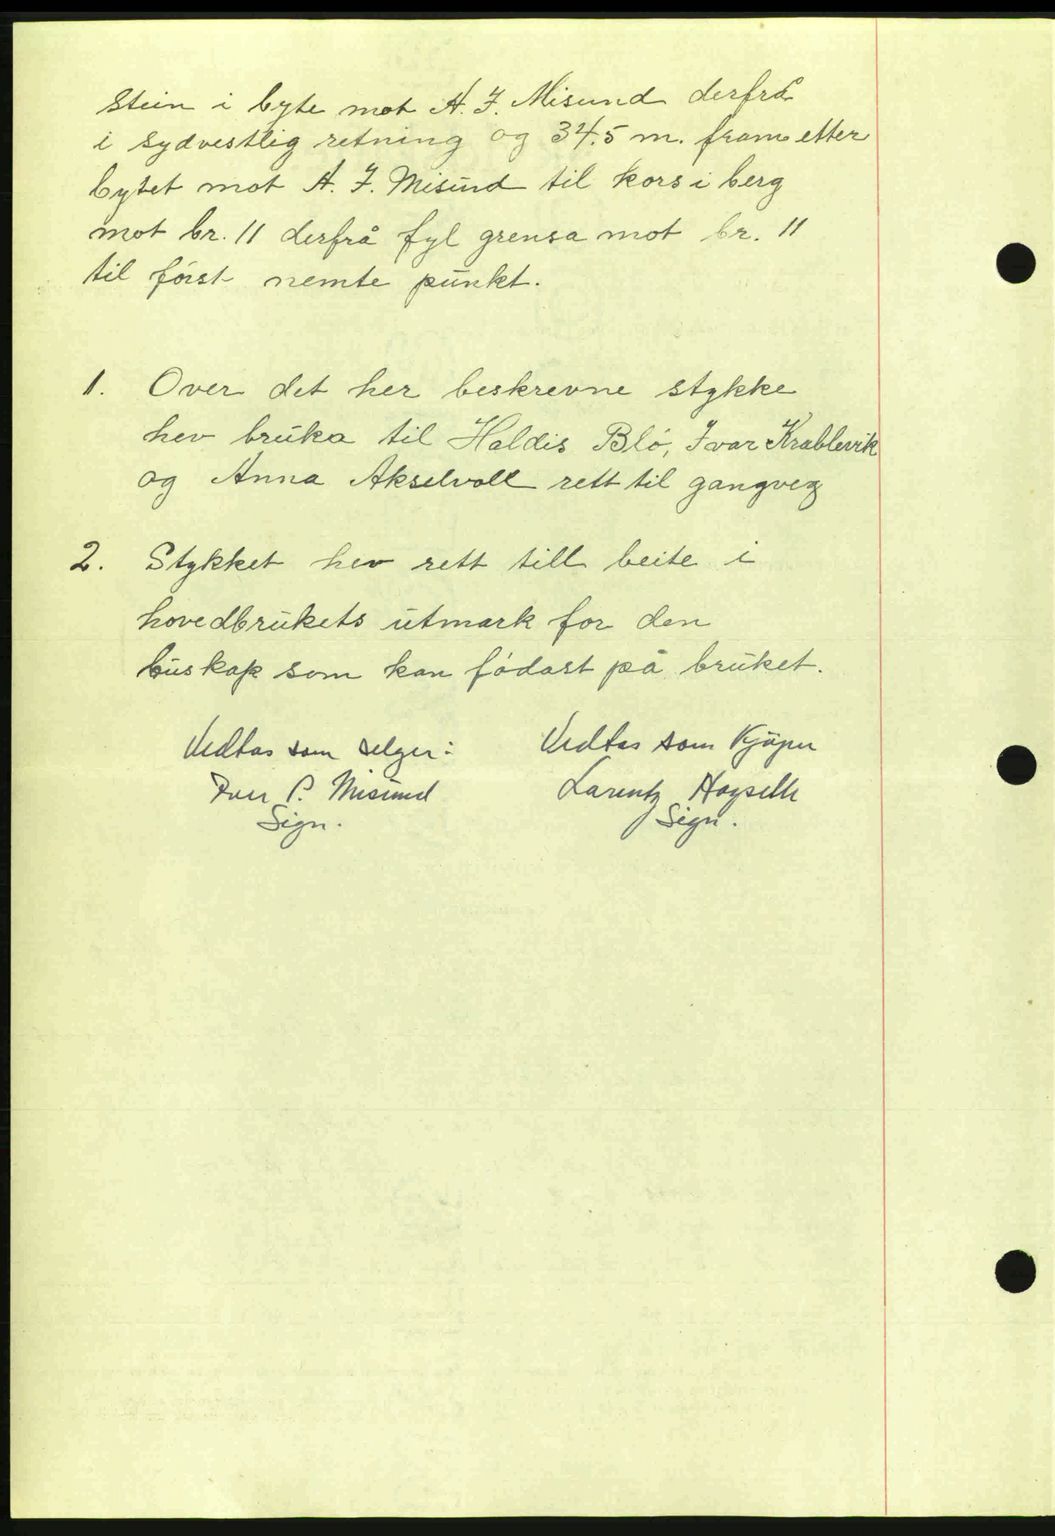 stein i byte mot A. J. Misund derfrå
i sydvestlig retning og 34,5 m. fram etter
bytet mot A. J. Misund til kors i berg
mot br. 11 derfrå fyl grensa mot br. 11
til først nemte punkt.
1. Over det her beskrevne stykke
hev bruka til Haldis Blø, Ivar Krablevik
og Anna Akselvoll rett til gangveg
2. Stykket hev rett till beite i
hovedbrukets utmark for den
buskap som kan fødast på bruket.
Vedtas som selger: Vedtas som Kjøper
Iver P. Misund Larentz Høyseth
Sign. Sign.